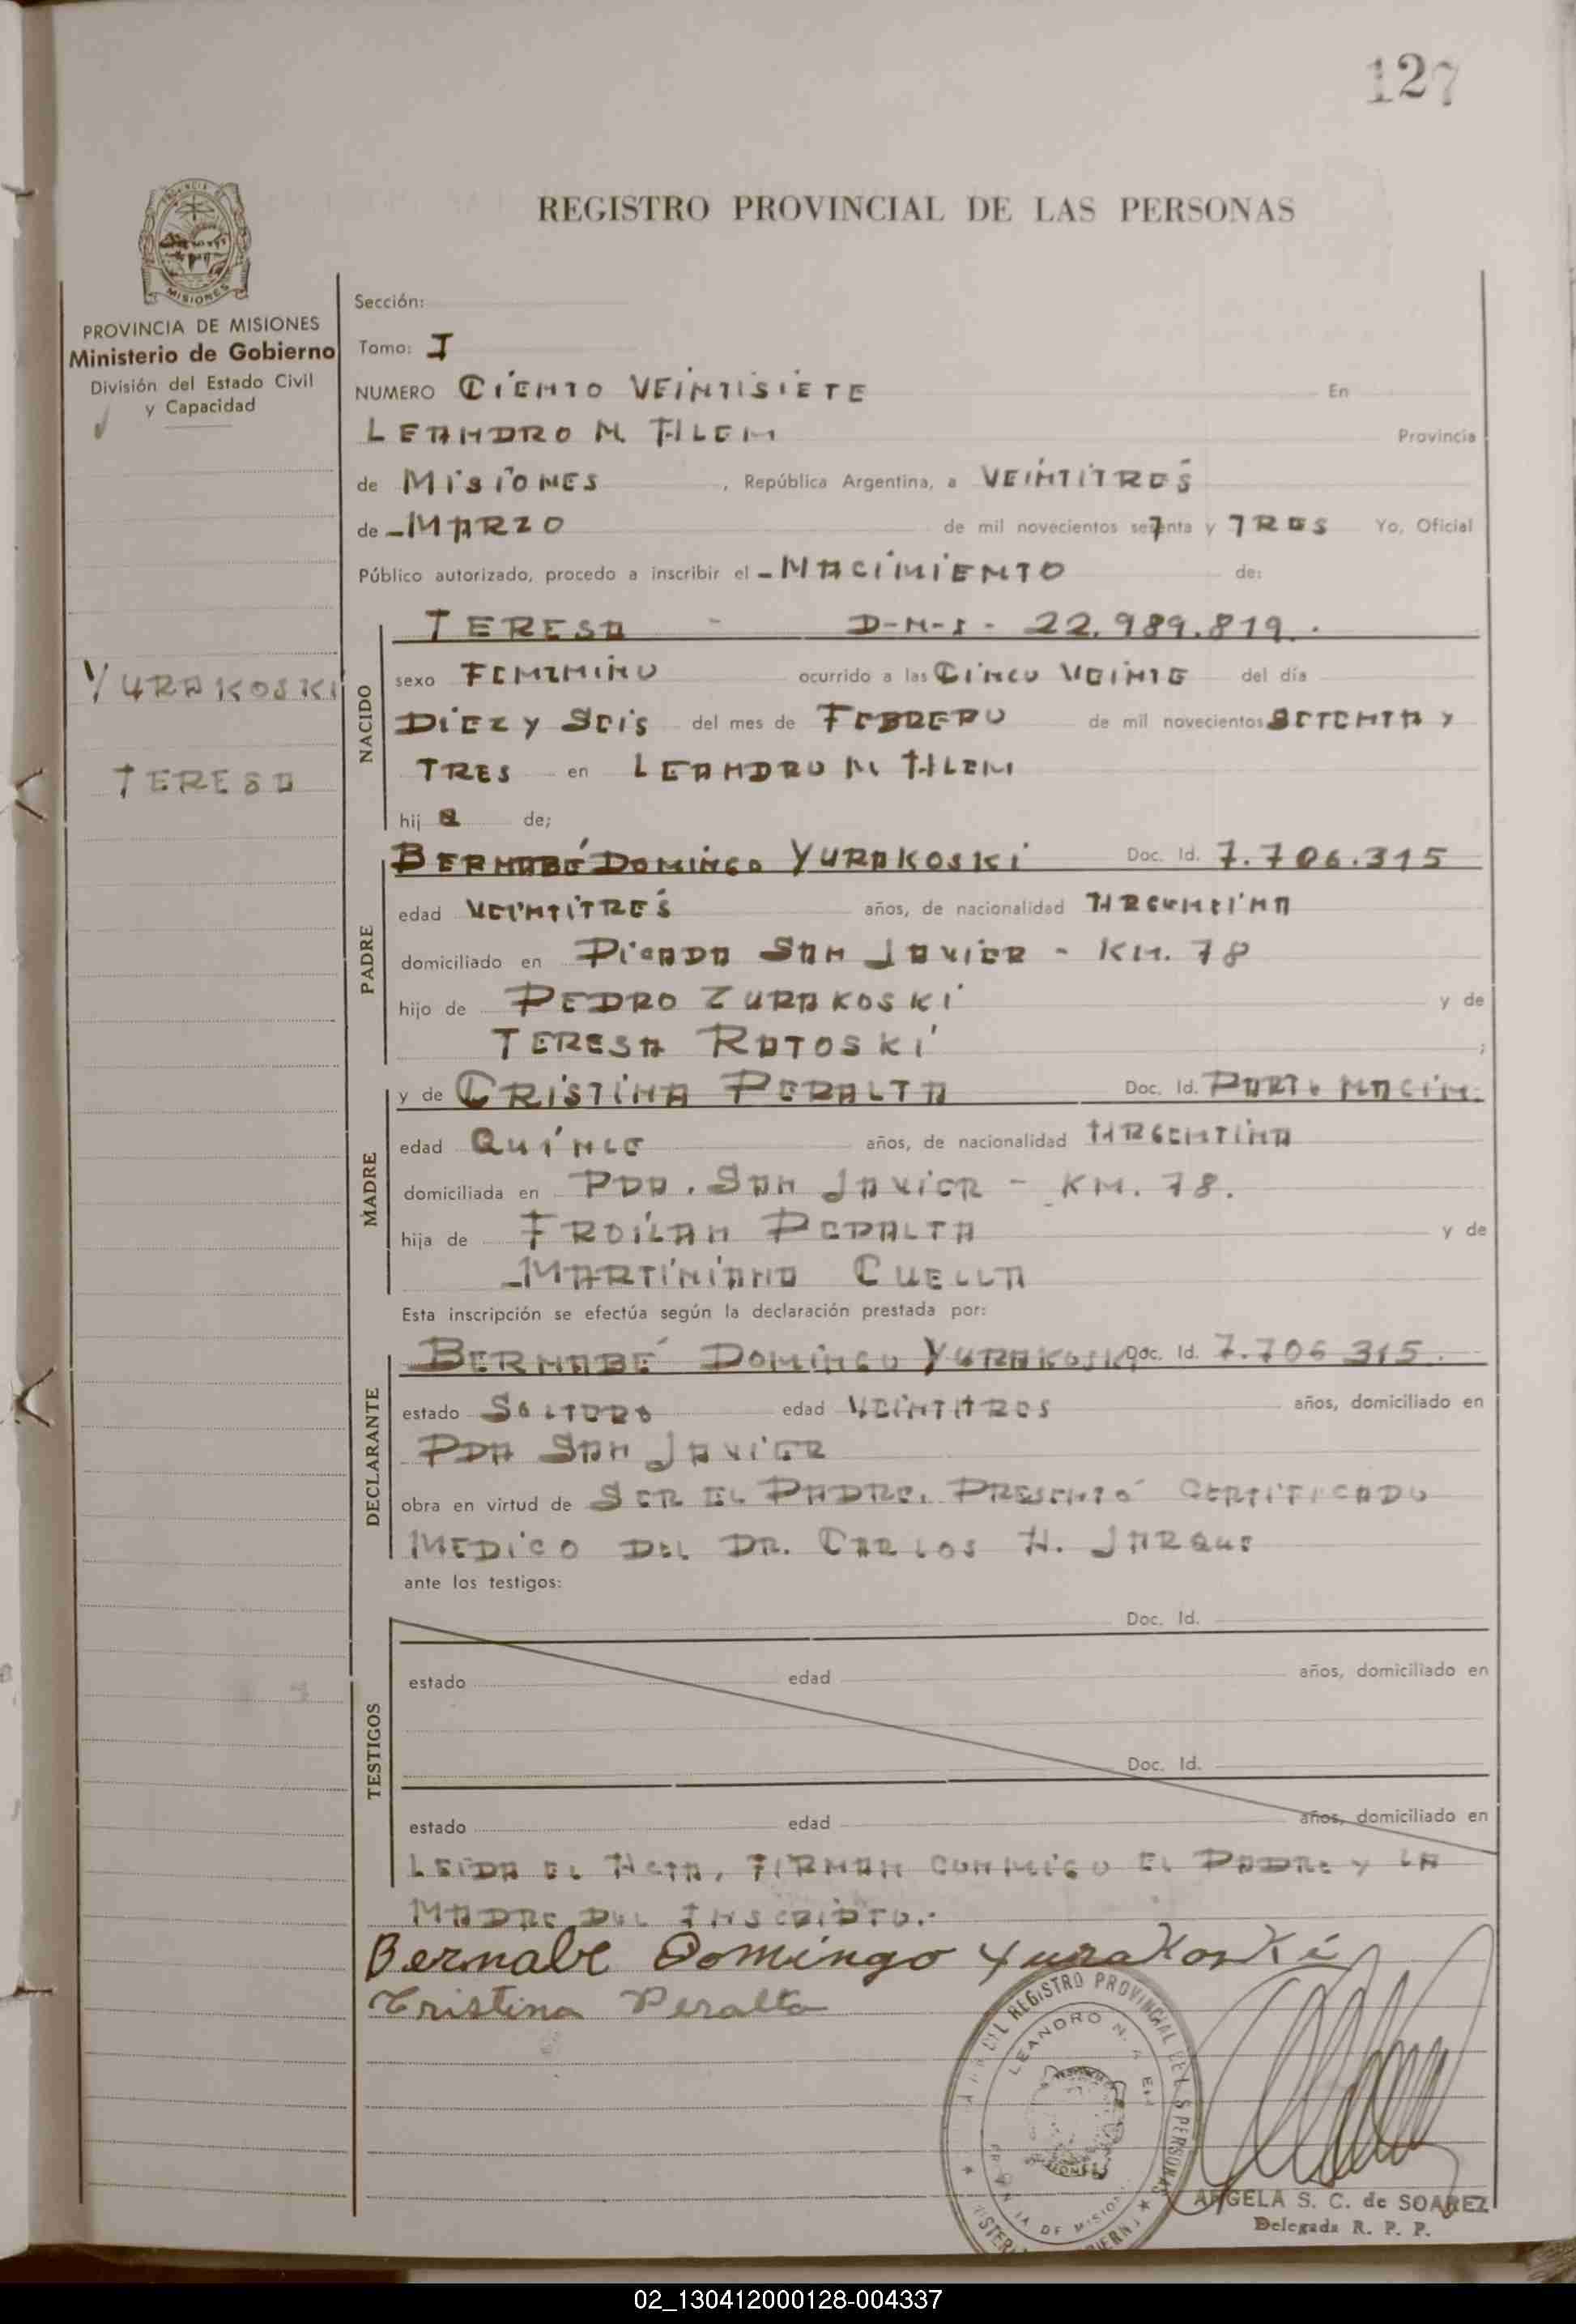 127
REGISTRO PROVINCIAL DE LAS PERSONAS
MISIONES
PROVINCIA DE MISIONES
Ministerio de Gobierno
División del Estado Civil
y Capacidad
Sección:
Tomo: I
NUMERO CIENTO VEINTISIETE En
LEANDRO N. ALEM Provincia
de MISIONES, República Argentina, a VEINTITRÉS
de MARZO de mil novecientos setenta y TRES Yo, Oficial
Público autorizado, procedo a inscribir el NACIMIENTO de:
YURAKOSKI
TERESA
NACIDO
TERESA - D-N-I- 22.989.819.
sexo FEMENINO ocurrido a las CINCO VEINTE del día
DIEZ Y SEIS del mes de FEBRERO de mil novecientos SETENTA Y
TRES en LEANDRO N ALEM
hij a de;
PADRE
BERNABÉ DOMINGO YURAKOSKI Doc. Id. 7.706.315
edad VEINTITRÉS años, de nacionalidad ARGENTINA
domiciliado en PICADA SAN JAVIER - KM. 78
hijo de PEDRO ZURAKOSKI y de
TERESA RATOSKI ;
MADRE
y de CRISTINA PERALTA Doc. Id. PART. NACIM.
edad QUINCE años, de nacionalidad ARGENTINA
domiciliada en PDA. SAN JAVIER - KM. 78.
hija de FROILAN PERALTA y de
MARTINIANA CUELLA
Esta inscripción se efectúa según la declaración prestada por:
DECLARANTE
BERNABÉ DOMINGO YURAKOSKI Doc. Id. 7.706 315.
estado SOLTERO edad VEINTITRES años, domiciliado en
PDA SAN JAVIER
obra en virtud de SER EL PADRE. PRESENTÓ CERTIFICADO
MEDICO DEL DR. CARLOS H. JARQUE
ante los testigos:
TESTIGOS
Doc. Id.
estado edad años, domiciliado en
Doc. Id.
estado edad años, domiciliado en
LEIDA EL ACTA, FIRMAN CONMIGO EL PADRE Y LA
MADRE DEL INSCRIPTO.-
Bernabe Domingo Yurakoski
Cristina Peralta
DEL REGISTRO PROVINCIAL DE LAS PERSONAS
LEANDRO N. ALEM
PROVINCIA DE MISIONES
ANGELA S. C. de SOAREZ
Delegada R. P. P.
02_130412000128-004337